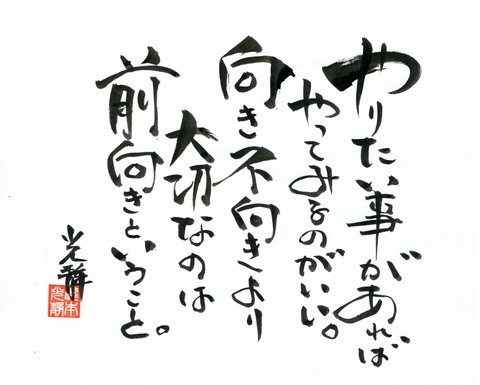 やりたい事があれば
やってみるのがいい。
向き不向きより
大切なのは
前向きということ。
光静